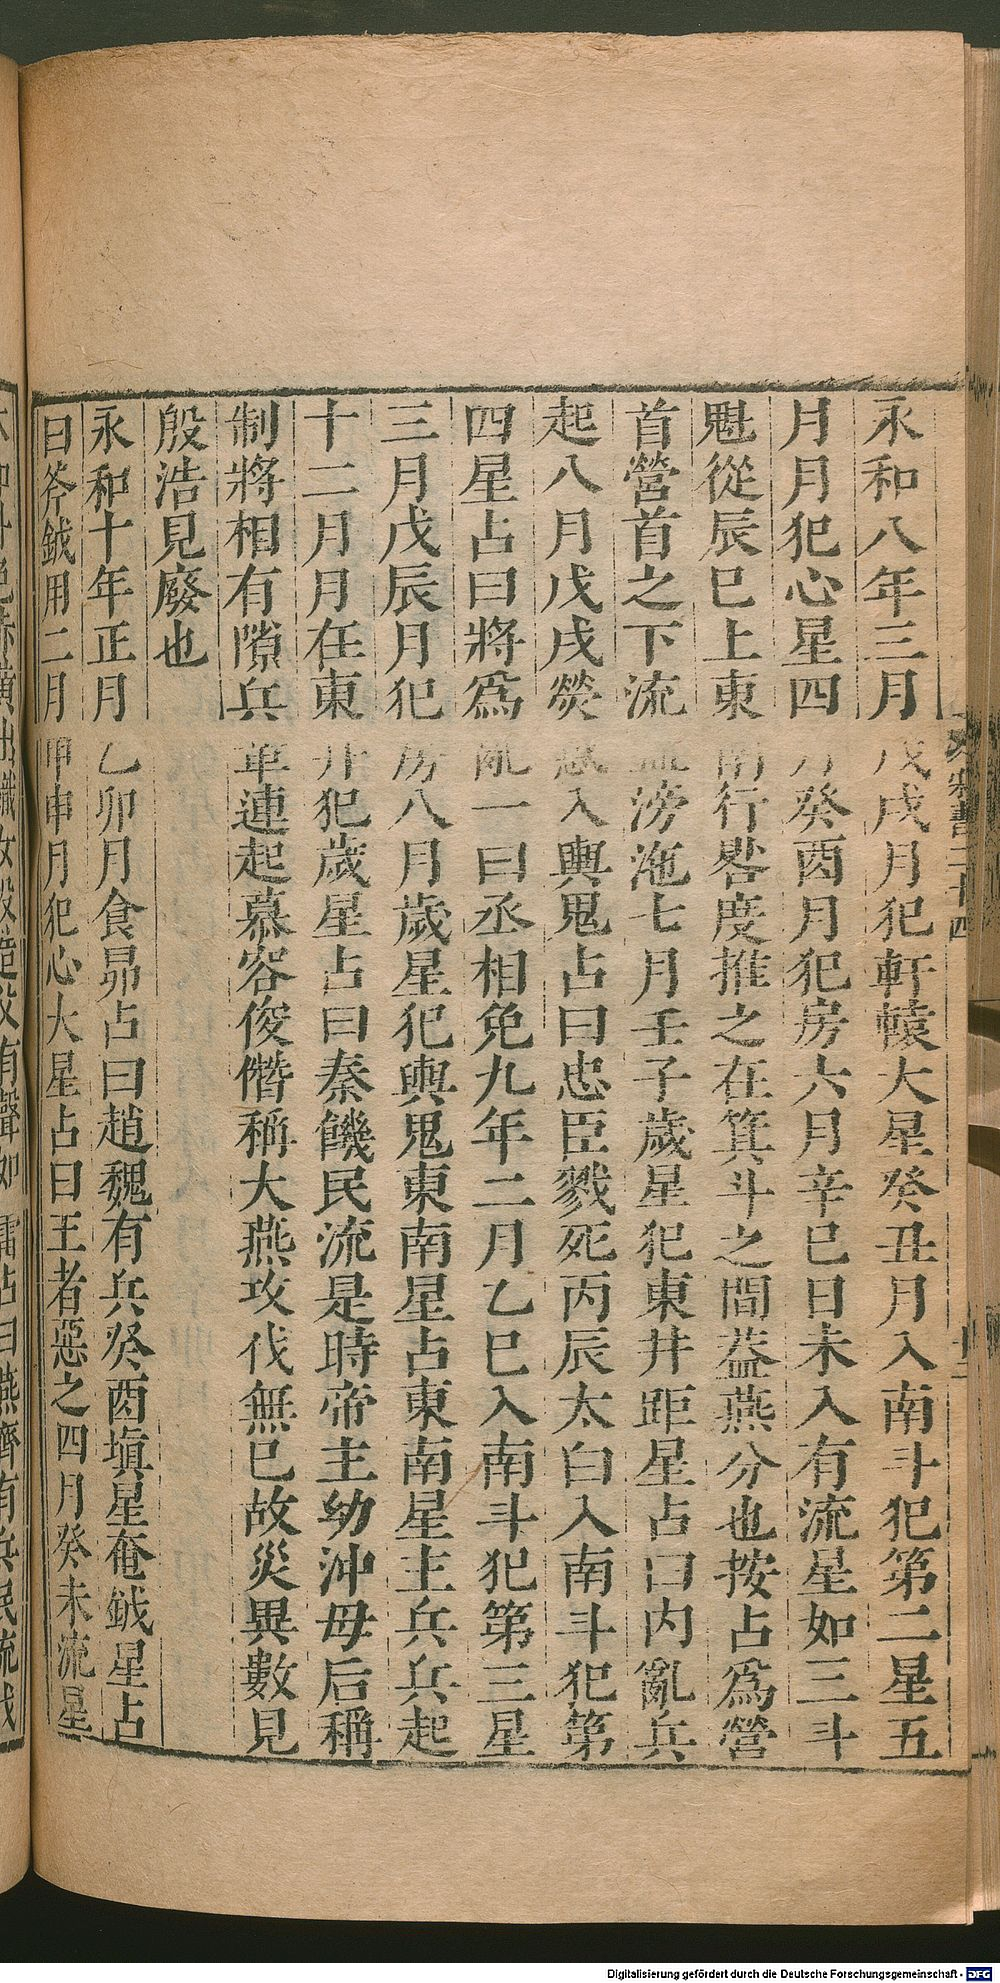 永和八年三月戊戌月犯軒轅大星癸丑月入南斗犯第二星五
月月犯心星四月癸酉月犯房六月辛巳日未入有流星如三斗
魁從辰巳上東南行晷度推之在箕斗之間葢燕分也按占爲營
首營首之下流血滂沲七月壬子歲星犯東井距星占曰内亂兵
起八月戊戌熒惑入輿鬼占曰忠臣戮死丙辰太白入南斗犯第
四星占曰將爲亂一曰丞相免九年二月乙巳入南斗犯第三星
三月戊辰月犯房八月歲星犯輿鬼東南星占東南星主兵兵起
十二月月在東井犯歲星占曰秦饑民流是時帝主幼沖母后稱
制將相有隙兵革連起慕容俊僭稱大燕攻伐無已故災異數見
殷浩見廢也
永和十年正月乙卯月食昴占曰趙魏有兵癸酉塡星奄鉞星占
曰斧鉞用二月甲申月犯心大星占曰王者惡之四月癸未流星
宋書二十四
織女 有聲如雷占曰燕齊有兵民流
Digitalisierung gefördert durch die Deutsche Forschungsgemeinschaft - DFG